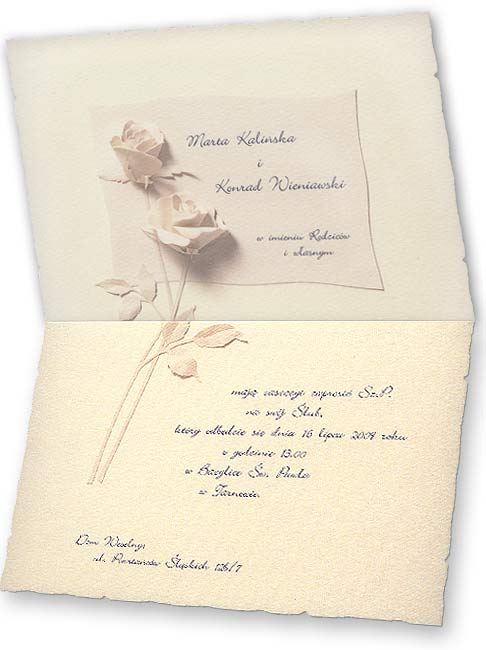 Marta Kalińska
i
Konrad Wieniawski
w imieniu Rodziców
i własnym
mają zaszczyt zaprosić Sz.P.
na swój Ślub,
który odbędzie się dnia 16 lipca 2009 roku
o godzinie 13.00
w Bazylice Św. Pawła
w Tarnowie.
Dom Weselny:
ul. Powstańców Śląskich 126/7